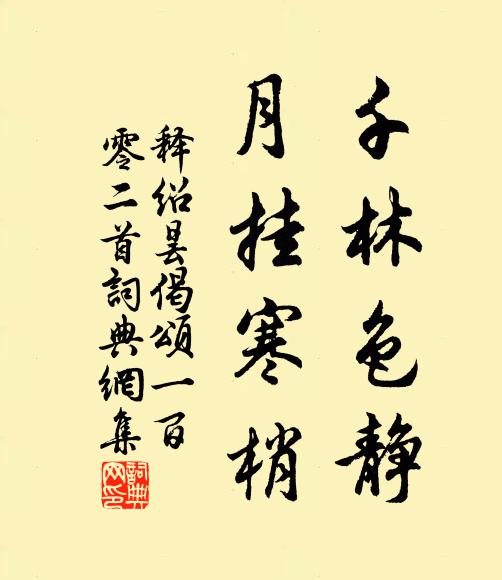 千林色静
月挂寒梢
释绍昙偈颂一百
零二首词典网集
词典网印